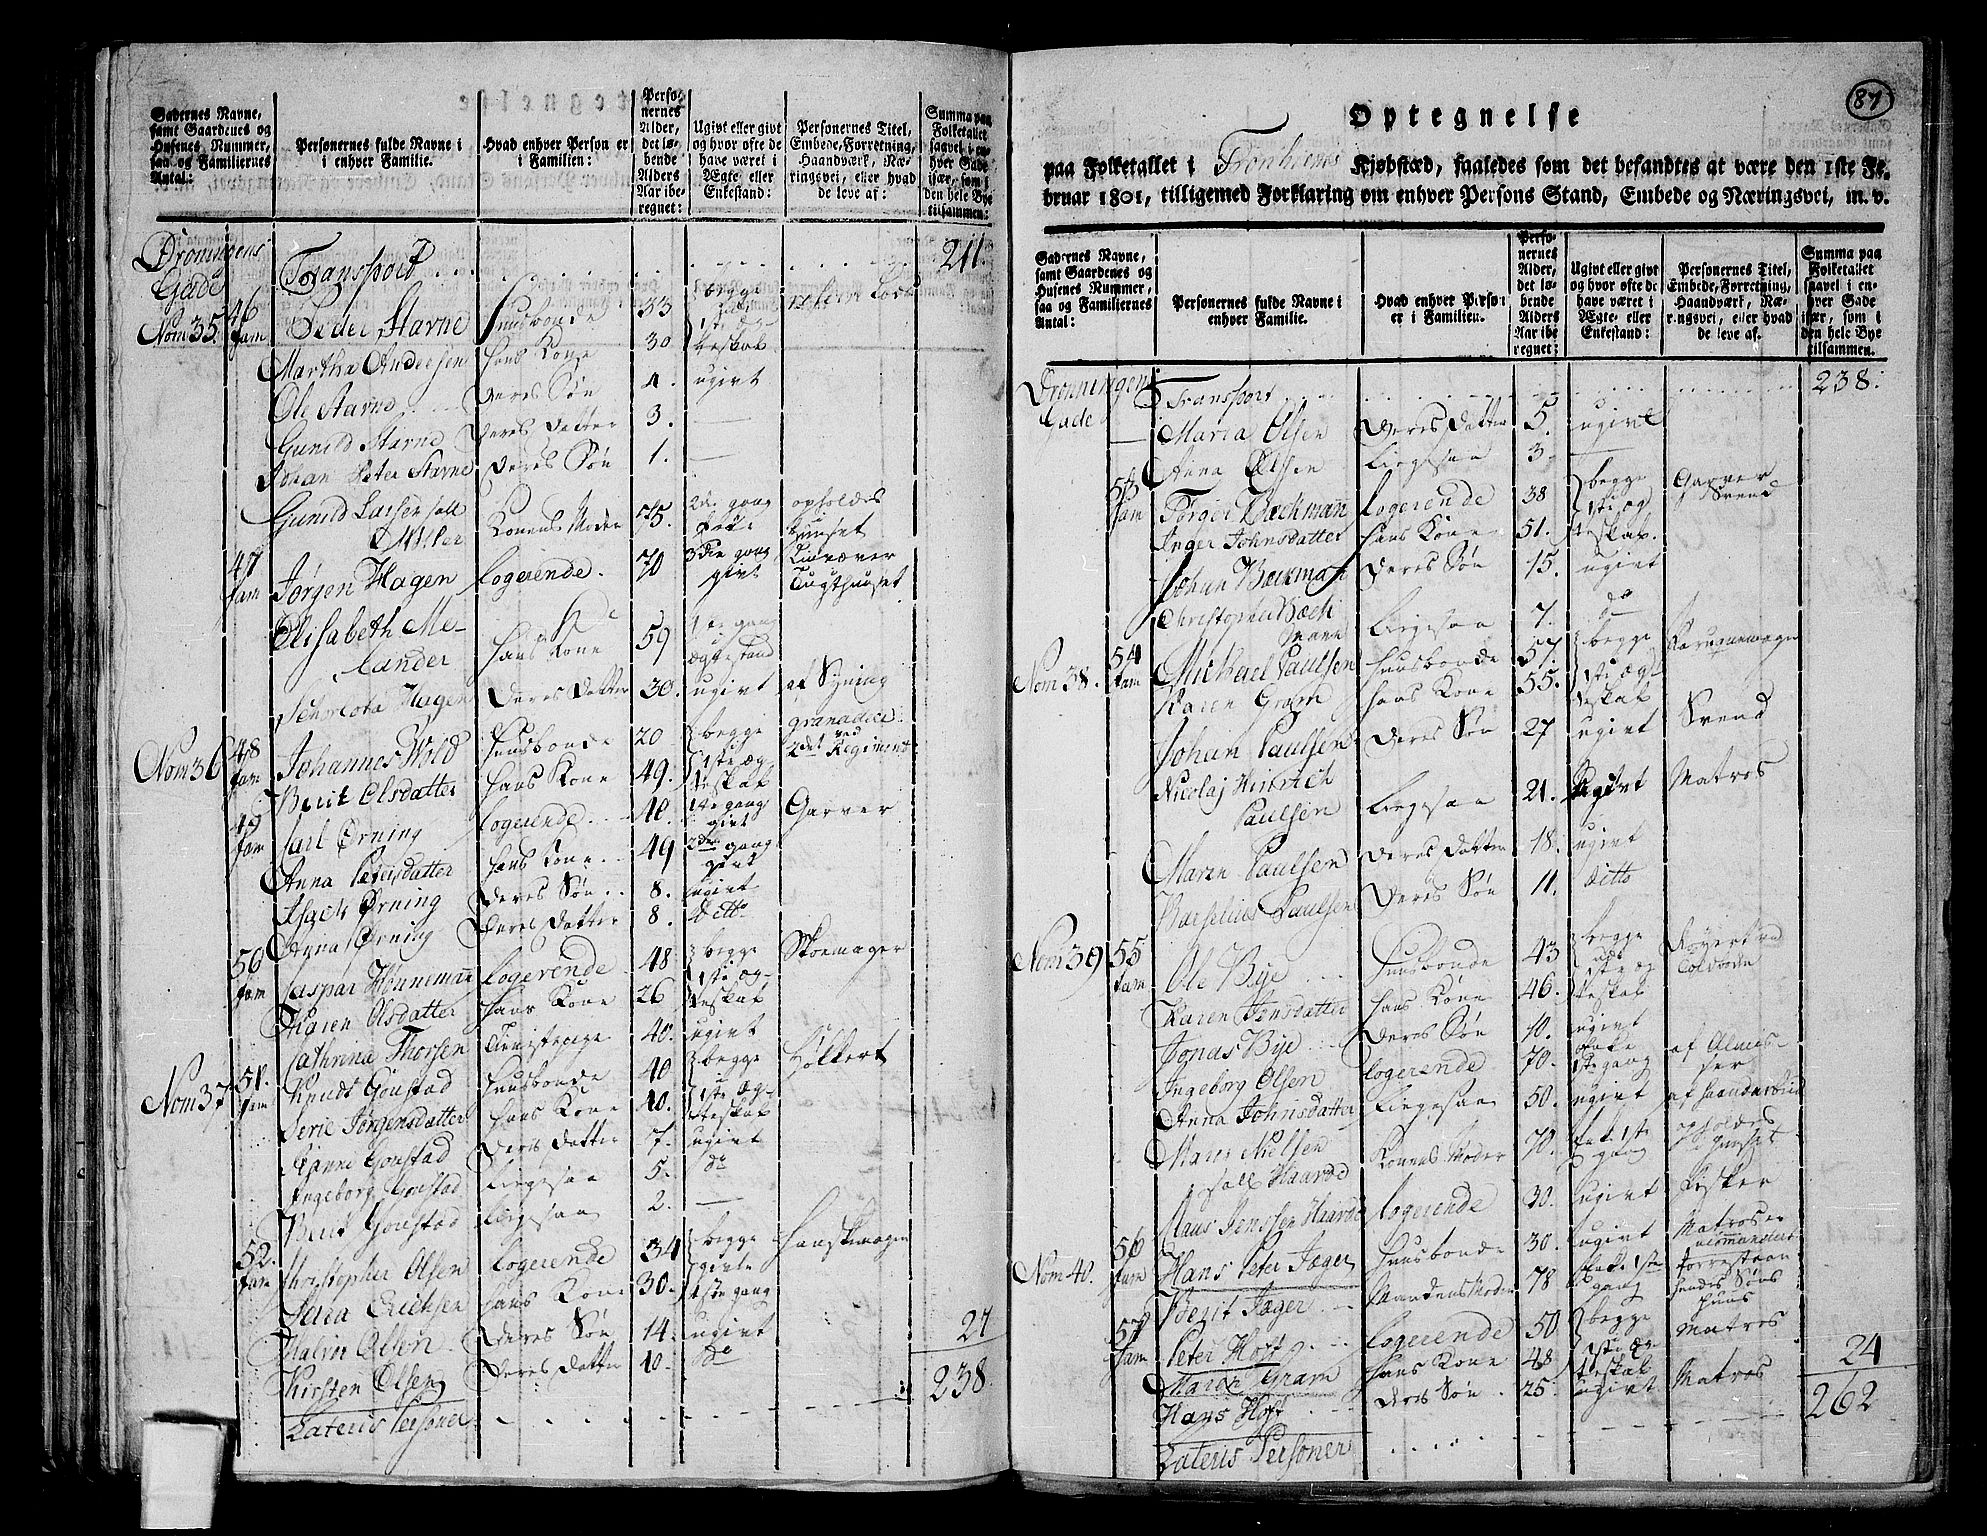 Gadernes Navne,
samt Gaardenes og
Husenes Nummer,
saa og Familiernes
Antal:
Personernes fulde Navne i
enhver Familie.
Hvad enhver Person er
i Familien:
Perso-
nernes
Alder,
det lø-
bende
Alders
Aar ibe-
regnet:
Ugivt eller givt
og hvor ofte de
have været i
Ægte eller
Enkestand:
Personernes Titel,
Embede, Forretning,
Haandværk, Næ-
ringsvei, eller hvad
de leve af:
Summa paa
Folketallet
saavel i en-
hver Gade
især, som i
den hele Bye
tilsammen:
Dronningens Gade Transport 211.
Nom 35. 46 fam Peder Starne Huusbonde 33 begge
1ste Æg-
Martha Andersen hans Kone 30 teskab
Ole Starne deres Søn 4. ugivt
Gunild Starne deres datter 3. —
Johan Peter Starne deres Søn 1. —
Gunild Larsen sall Konens Moder 75. 2de gang opholdes
Enke Huuset
47 fam Jørgen Hagen logerende 70 3die gang
givt Tugthuuset
Elisabeth Me-
lander hans Kone 59 1te gang
Ægtestand
Hagen deres datter 30. ugivt af Syning
Nom 36 48 fam Johannes Wold Huusbonde 20 begge granadeer ved
Berit Olsdatter hans Kone 49. 1ste Æg- teskab 2det Regiment
49 fam Carl Ørning logerende 40. 1te gang givt Garver
Anna Petersdatter hans Kone 49 2den gang givt
Isach Ørning deres Søn 8. ugivt
Anna Ørning deres datter 8. ditto
50 fam Caspar Hennemann logerende 48 begge Skoemager
Karen Olsdatter hans Kone 26 1ste Æg- teskab
Cathrina Thorsen Tienistepige 40. ugivt
Nom 37 51. fam Knuds Gonstad Huusbonde 40 begge Høkkert
Serie Jørgensdatter hans Kone 40. 1ste Æg- teskab
Anne Gonstad deres datter 7. ugivt
Ingeborg Gonstad Ligesaa 5. do
Berit Gonstad Ligesaa 2. —
52. fam Christopher Olsen logerende 34 begge givte Handskemager
Sera Erichsen hans Kone 30. 1ste gang
Halvor Olsen deres Søn 14. ugivt 27
Kirsten Olsen deres datter 10. do
Lateris Personer 238
87
Optegnelse
paa Folketallet i Tronhiems Kjøbstæd, saaledes som det befandtes at være den 1ste Fe-
bruar 1801, tilligemed Forklaring om enhver Persons Stand, Embede og Næringsvei, m. v.
Gadernes Navne,
samt Gaardenes og
Husenes Nummer,
saa og Familiernes
Antal:
Personernes fulde Navne i
enhver Familie.
Hvad enhver Person
er i Familien.
Perso-
nernes
Alder,
det lø-
bende
Alders
Aar ibe-
regnet:
Ugivt eller givt
og hvor ofte de
have været i
Ægte- eller
Enkestand:
Personernes Titel,
Embede, Forretning,
Haandværk, Næ-
ringsvei, eller hvad
de leve af.
Summa paa
Folketallet
saavel i en-
hver Gade
især, som i
den hele Bye
tilsammen.
Dronningens Gade Transport 238.
Maria Olsen deres datter 5. ugivt
Anna Olsen Ligesaa 3 —
53 fam Torger Beckmann logerende 38 begge Garver Svend
Inger Johnsdatter hans Kone 51. 1ste Æg- teskab.
Johan Beckmann deres Søn 15. ugivt
Christopher Beck-
mann Ligesaa 7. do
Nom 38. 54 fam Michael Paulsen Huusbonde 57. begge
Karen Gram hans Kone 55. 1ste Æg- teskab
Johan Paulsen deres Søn 27 ugivt Svend
Nicolaj Hinrich
Paulsen Ligesaa 21. Ugivt Matros
Maren Paulsen deres datter 18. ugivt
Paulsen deres Søn 11. ditto
Nom 39 55 fam Ole Bye Huusbonde 43 begge
Karen Jonsdatter hans Kone 46. 1ste Æg- teskab Toldboden
Jonas Bye deres Søn 10. ugivt
Ingeborg Olsen logerende 70. Enke 1ste gang af Almis-
ser
Anna Johnsdatter Ligesaa 50. ugivt
Nielsen
sall Haarde Konens Moder 70. Enke 1ste gang opholdes i Huuset
Jenssen Haarde logerende 30. ugivt Fisker
Nom 40. 56 fam Hans Peter Jæger Huusbonde 30. ugivt Matros
Berit Jæger Mandens Moder 78 Enke 1ste gang forrestaar
hendes Søns
Huus
57 fam Peter Hoff logerende 50 begge Matros
Maren Gram hans Kone 48 1ste Æg- teskab 24
Hans Hoff deres Søn 25. ugivt Matros
Lateris Personer 262